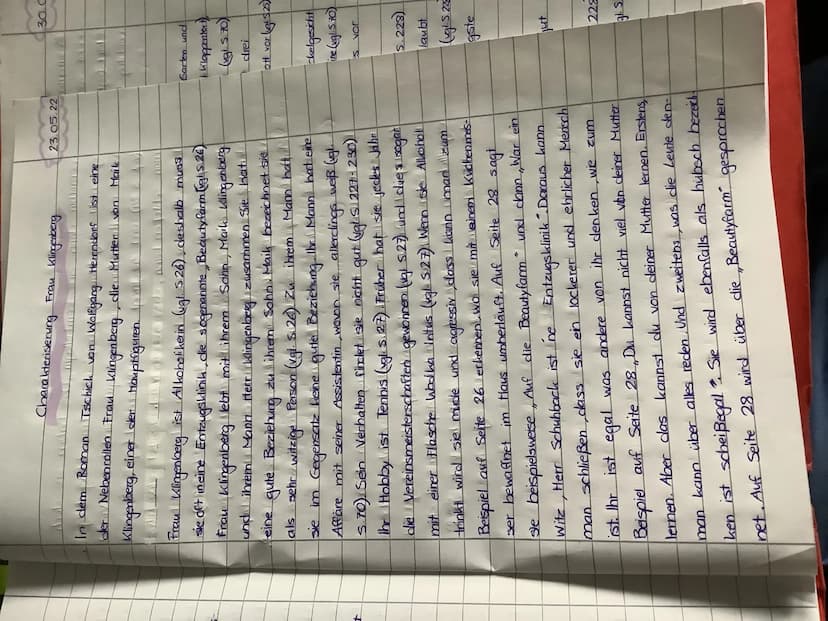 Charakterisierung Frau Klingenberg
23.05.22
In dem Roman Tschick von Wolfgang Herrndorf ist eine
der Nebenrollen Frau Klingenberg, die Mutter von Maik
Klingenberg, einer der Hauptfiguren.
Frau Klingenberg ist Alkoholikerin (vgl. S.26), deshalb muss
sie oft in eine Entzugsklinik, die sogenannte „Beautyfarm" (vgl. S.26)
Frau Klingenberg lebt mit ihrem Sohn, Maik Klingenberg
und ihrem Mann Herr Klingenberg zusammen. Sie hat
eine gute Beziehung zu ihrem Sohn. Maik bezeichnet sie
als sehr witzige Person (vgl. S.26) Zu ihrem Mann hat
sie im Gegensatz keine gute Beziehung. Ihr Mann hat eine
Affäre mit seiner Assistentin, wovon sie allerdings weiß (vgl.
S.70) Sein Verhalten findet sie nicht gut (vgl. S.227-230)
Ihr Hobby ist Tennis (vgl. S.27) Früher hat sie jedes Jahr
die Vereinsmeisterschaften gewonnen (vgl. S.27) und dies sogar
mit einer Flasche Wodka intus (vgl. S.27). Wenn sie Alkohol
trinkt wird sie müde und agressiv, dass kann man zum
Beispiel auf Seite 26 erkennen, wo sie mit einem Küchenmes-
ser bewaffnet im Haus umherläuft. Auf Seite 28 sagt
sie beispielsweese „Auf die Beautyfarm" und dann „War ein
Witz, Herr Schuhback ist ne Entzugsklinik". Daraus kann
man schließen, dass sie ein lockerer und ehrlicher Mensch
ist. Ihr ist egal was andere von ihr denken, wie zum
Beispiel auf Seite 28 „Du kannst nicht viel von deiner Mutter
lernen. Aber das kannst du von deiner Mutter lernen. Erstens,
man kann über alles reden. Und zweitens, was die Leute den-
ken ist scheißegal". Sie wird ebenfalls als hübsch bezeich-
net. Auf Seite 28 wird über die „Beautyfarm" gesprochen
30.0
Garten und
Klappentext)
(vgl. S.70)
drei
ott vor (vgl. S.2
kelgesicht
ne (vgl. S.70)
s vor
S.228)
laubt
(vgl. S.28
gste
gut
228
gl. S